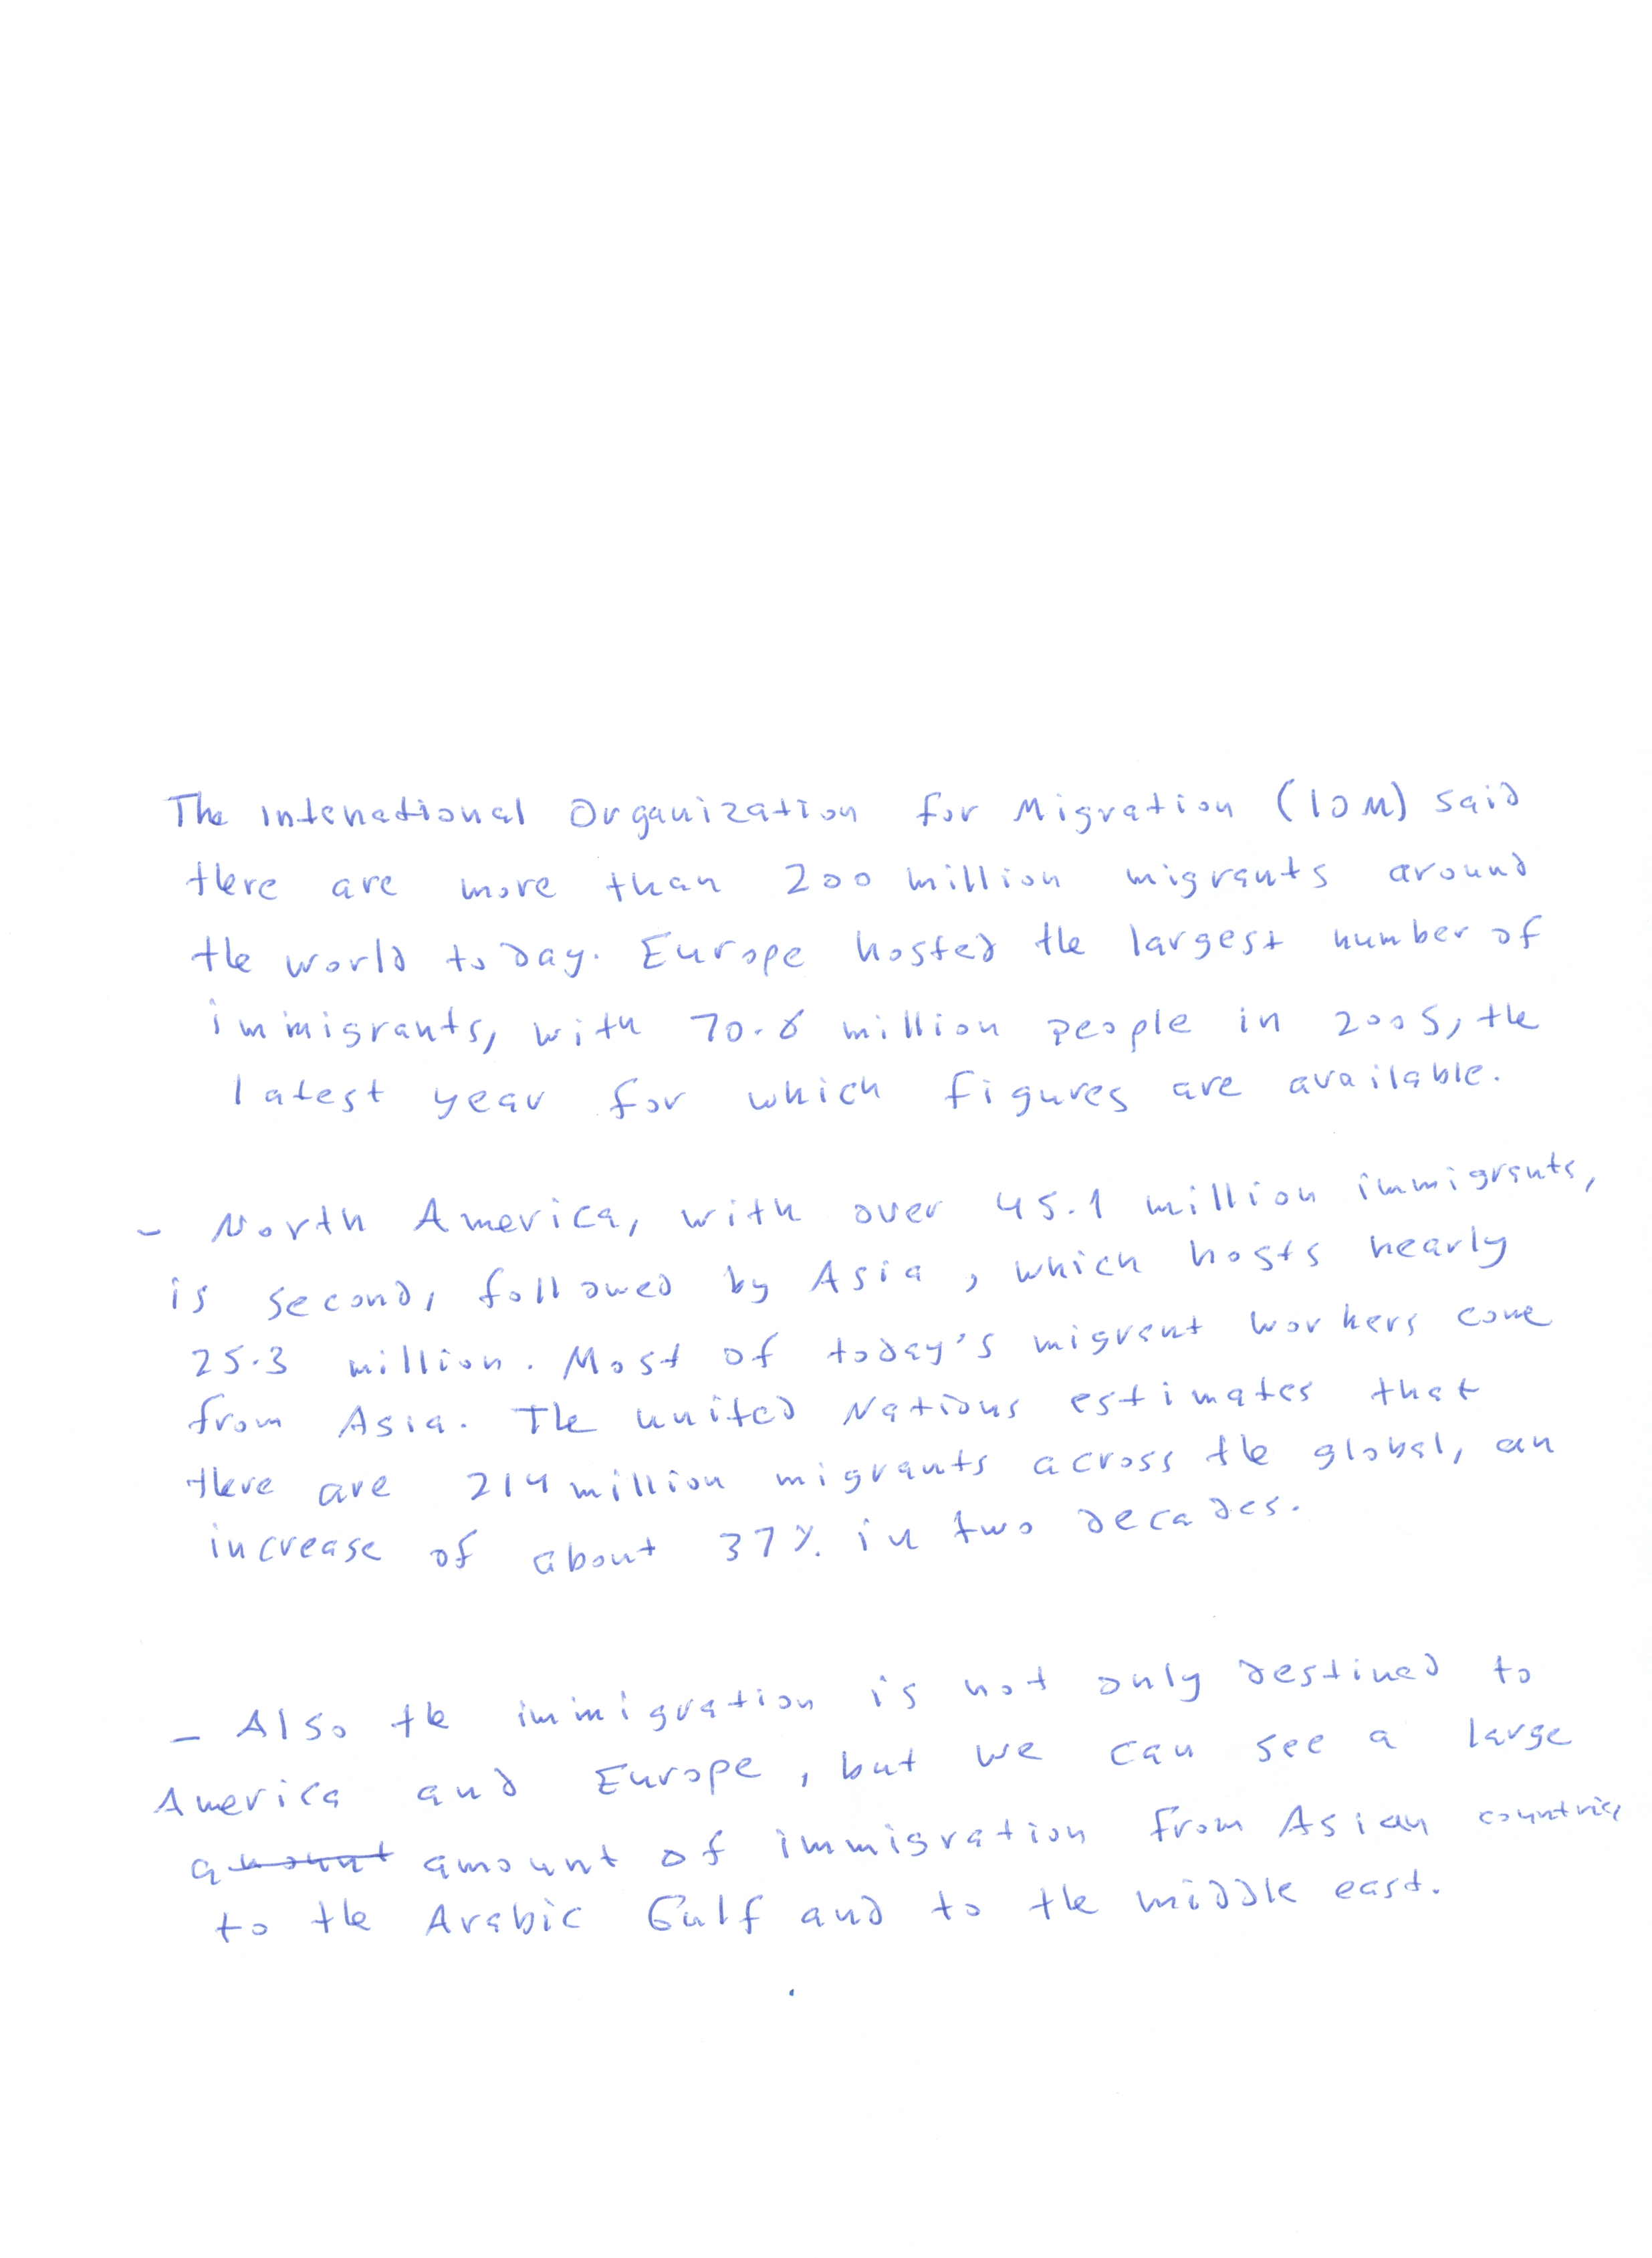 The Intenational Organization for Migration (IOM) said
there are more than 200 million migrants around
the world today. Europe hosted the largest number of
immigrants, with 70.6 million people in 2005, the
latest year for which figures are available.
- North America, with over 45.1 million immigrants,
is second, followed by Asia, which hosts nearly
25.3 million. Most of today's migrant workers come
from Asia. The united Nations estimates that
there are 214 million migrants across the global, an
increase of about 37% in two decades.
- Also the immigration is not only destined to
America and Europe, but we can see a large
amount amount of immigration from Asian countries
to the Arabic Gulf and to the middle east.